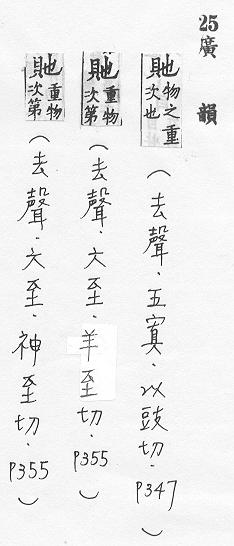 25廣韻
貤物之重次也（去聲．五寘．以豉切．P347）
貤重物次第（去聲．六至．羊至切．P355）
貤重物次第（去聲．六至．神至切．P355）